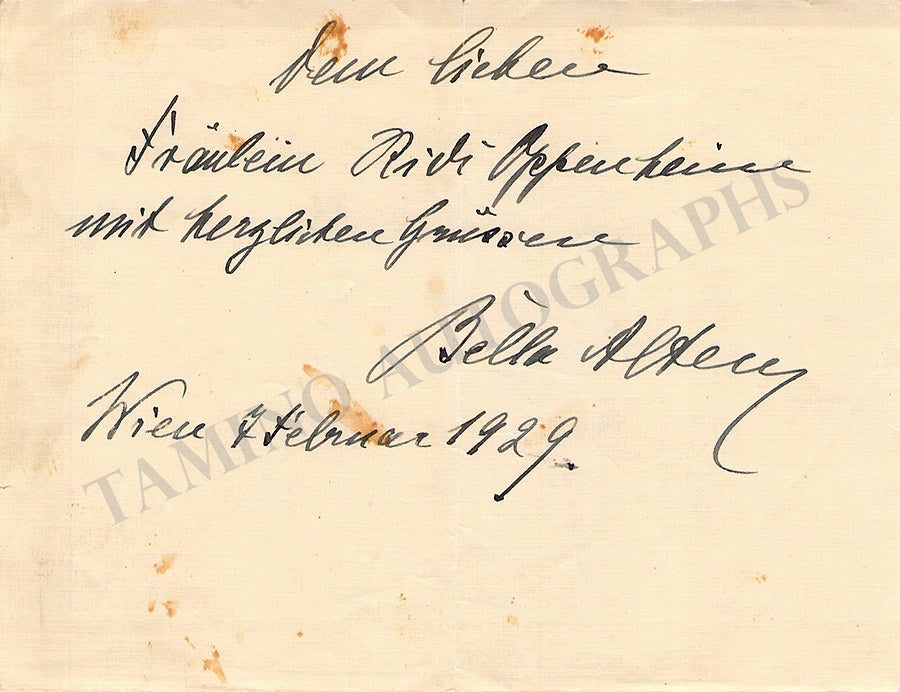 Dem lieben
Fräulein Ridi Oppenheim
mit herzlichen Grüssen
Bella Alten
Wien 7 Februar 1929.
TAMINO AUTOGRAPHS